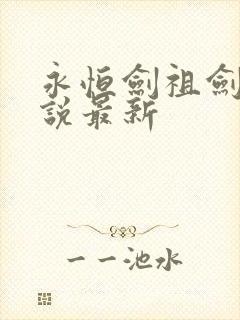 永恒劍祖劍
說最新
一一池水